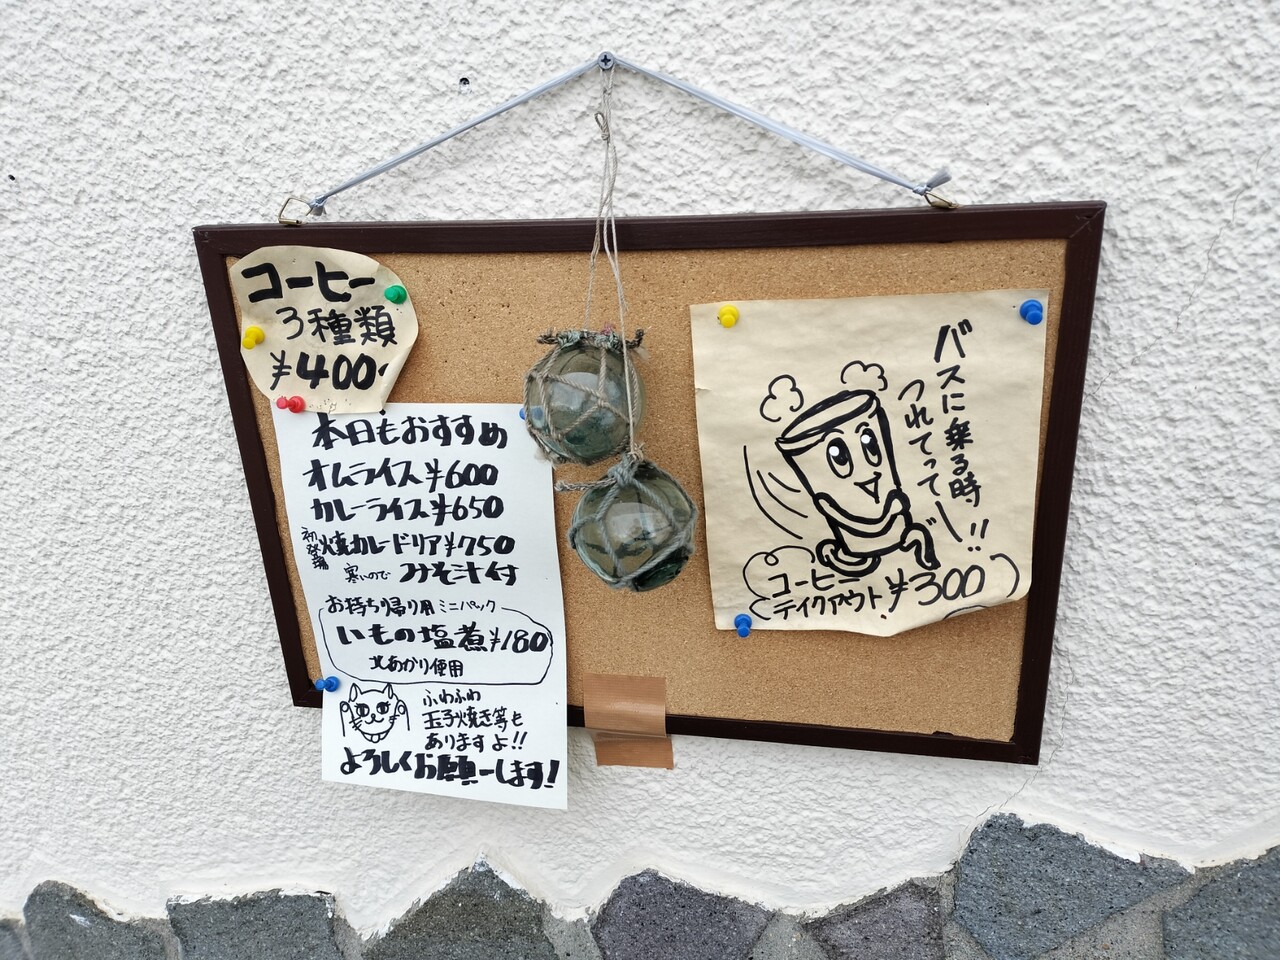 コーヒー
3種類
¥400
本日もおすすめ
オムライス¥600
カレーライス¥650
初登場 焼カレードリア¥750
寒いので みそ汁付
お持ち帰り用 ミニパック
いもの塩煮¥180
北あかり使用
ふわふわ
玉子焼き等も
ありますよ!!
よろしくお願ーします!
バスに乗る時
つれてってー!!
コーヒー
テイクアウト ¥300